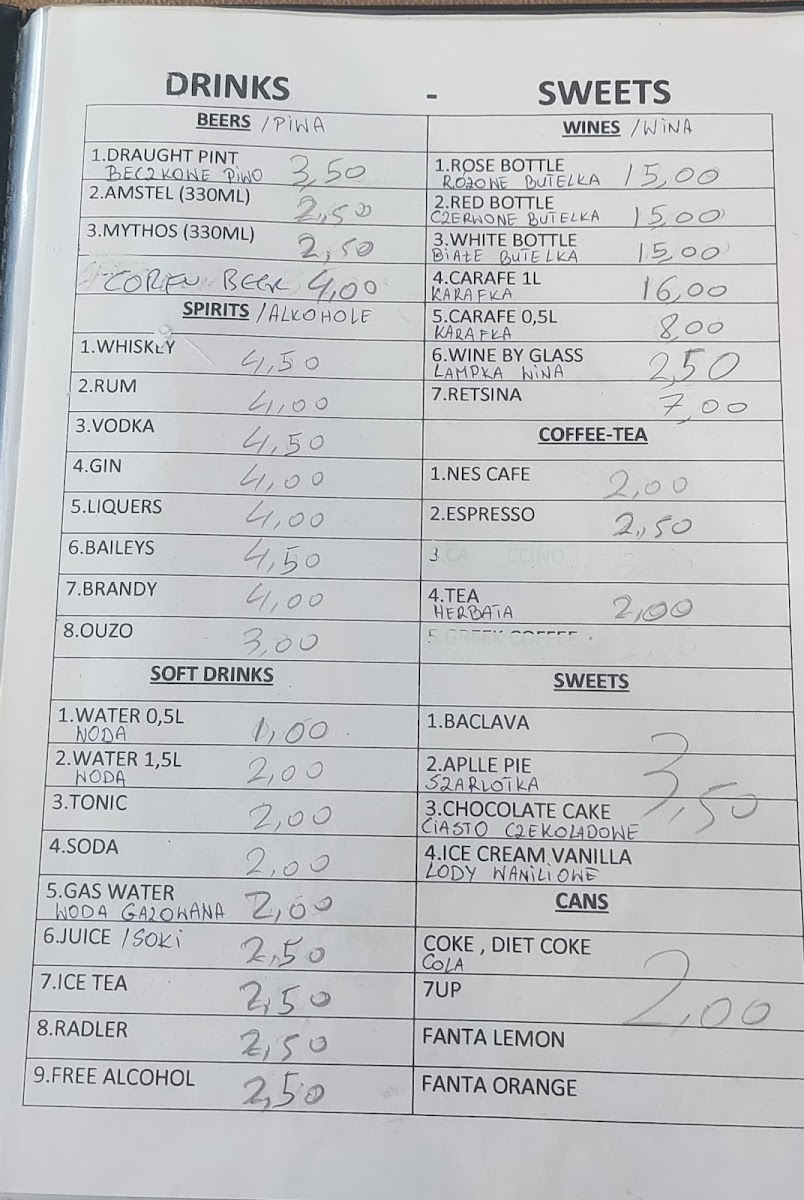 DRINKS - SWEETS
BEERS /PIWA
1.DRAUGHT PINT 3,50
BECZKOWE PIWO
2.AMSTEL (330ML) 2,50
3.MYTHOS (330ML) 2,50
BEER 4,00
SPIRITS /ALKOHOLE
1.WHISKEY 4,50
2.RUM 4,00
3.VODKA 4,50
4.GIN 4,00
5.LIQUERS 4,00
6.BAILEYS 4,50
7.BRANDY 4,00
8.OUZO 3,00
SOFT DRINKS
1.WATER 0,5L 1,00
WODA
2.WATER 1,5L 2,00
WODA
3.TONIC 2,00
4.SODA 2,00
5.GAS WATER 2,00
WODA GAZOWANA
6.JUICE /SOKI 2,50
7.ICE TEA 2,50
8.RADLER 2,50
9.FREE ALCOHOL 2,50
WINES /WINA
1.ROSE BOTTLE 15,00
RÓŻOWE BUTELKA
2.RED BOTTLE 15,00
CZERWONE BUTELKA
3.WHITE BOTTLE 15,00
BIAŁE BUTELKA
4.CARAFE 1L 16,00
KARAFKA
5.CARAFE 0,5L 8,00
KARAFKA
6.WINE BY GLASS 2,50
LAMPKA WINA
7.RETSINA 7,00
COFFEE-TEA
1.NES CAFE 2,00
2.ESPRESSO 2,50
3.CA CCINO
4.TEA 2,00
HERBATA
5.GREEK COFFEE
SWEETS
1.BACLAVA
2.APLLE PIE 3,50
SZARLOTKA
3.CHOCOLATE CAKE
CIASTO CZEKOLADOWE
4.ICE CREAM VANILLA
LODY WANILIOWE
CANS
COKE , DIET COKE
COLA
7UP 2,00
FANTA LEMON
FANTA ORANGE